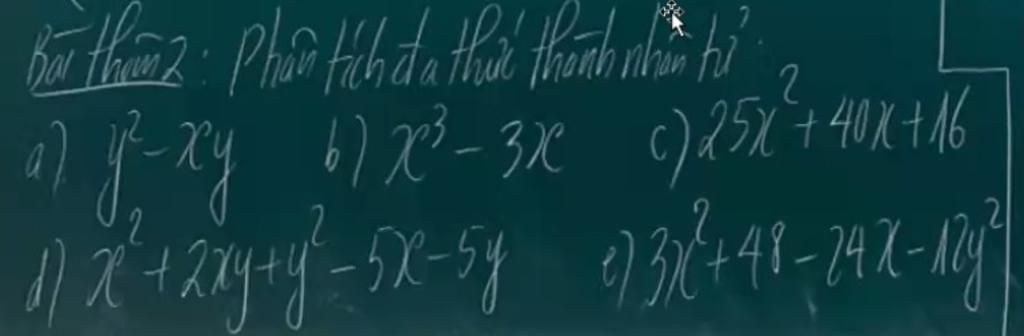 Bài thêm 2: Phân tích đa thức thành nhân tử:
a) y² - xy b) x³ - 3x c) 25x² + 40x + 16
d) x² + 2xy + y² - 5x - 5y e) 3x² + 48 - 24x - 12y²